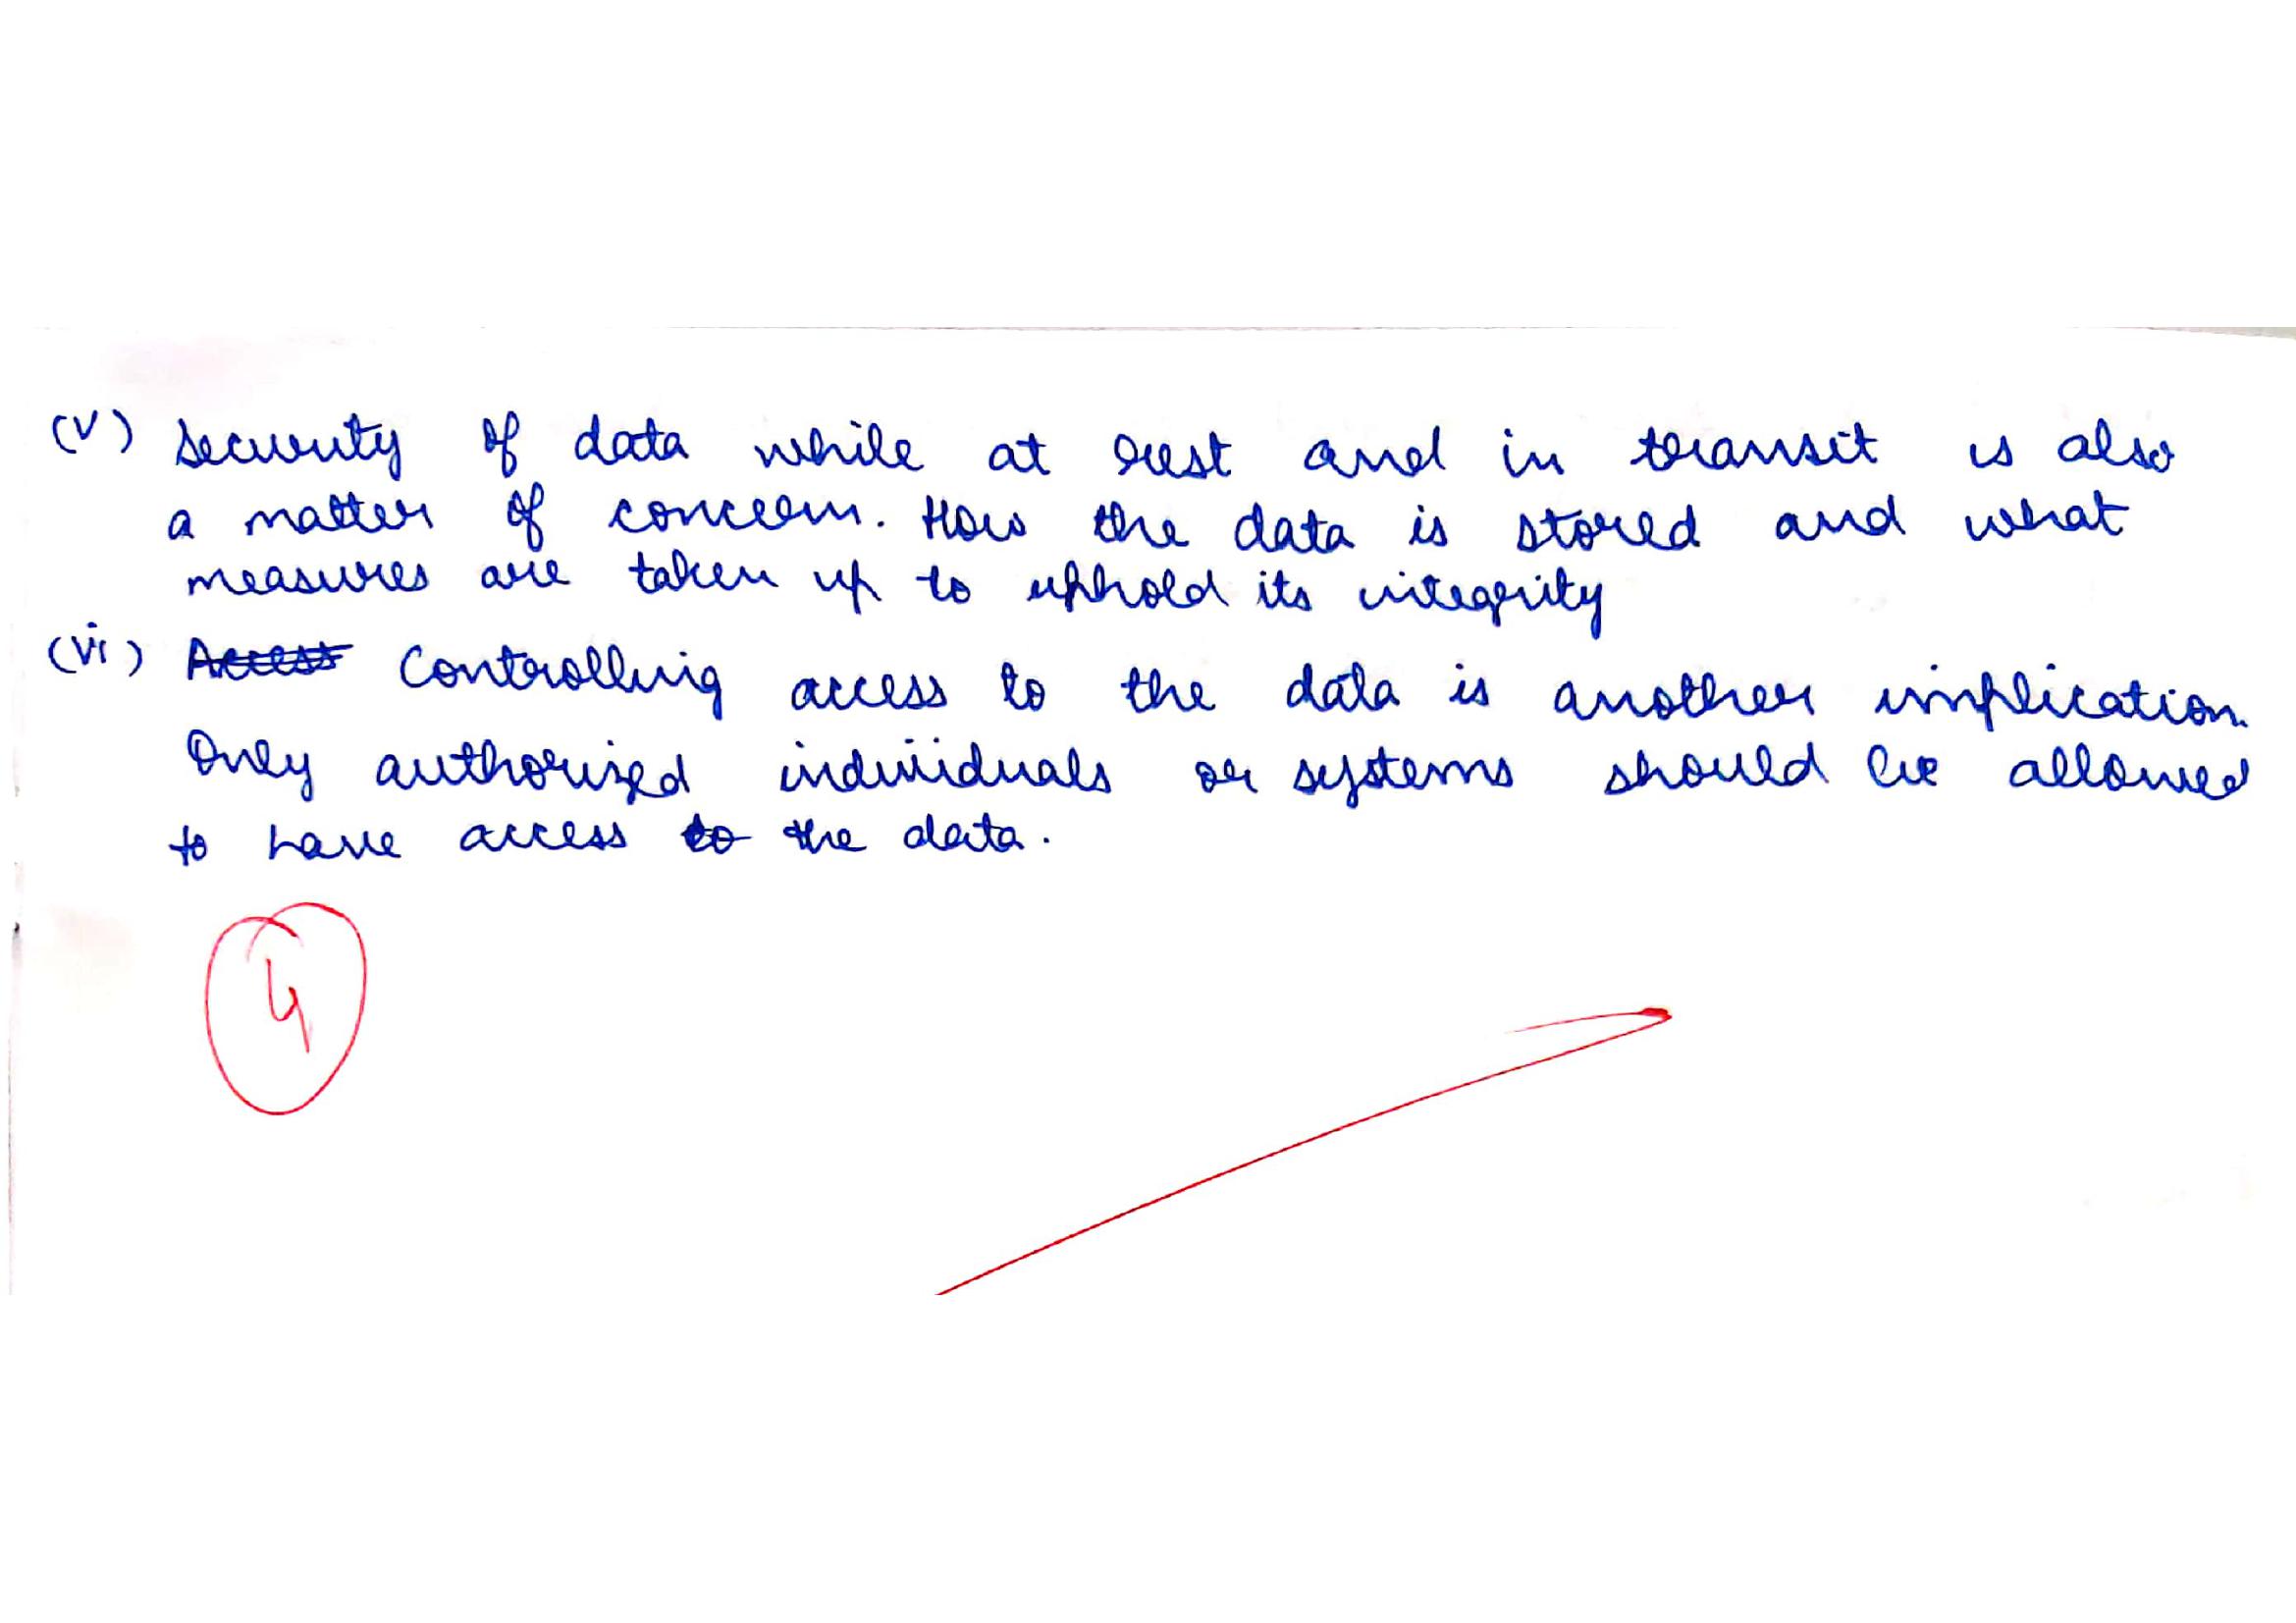 (v) Security of data while at rest and in transit is also
a matter of concern. How the data is stored and what
measures are taken up to uphold its integrity
(vi) Access Controlling access to the data is another implication.
Only authorized individuals or systems should be allowed
to have access to the data.
4